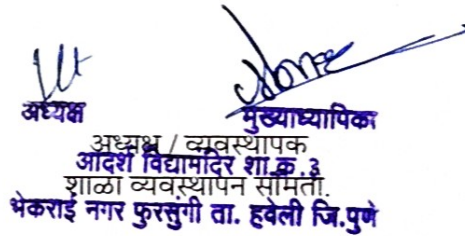 अध्यक्ष मुख्याध्यापिका
अध्यक्ष / व्यवस्थापक
आदर्श विद्यामंदिर शा.क्र.३
शाळा व्यवस्थापन समिती.
भेकराई नगर फुरसुंगी ता. हवेली जि.पुणे